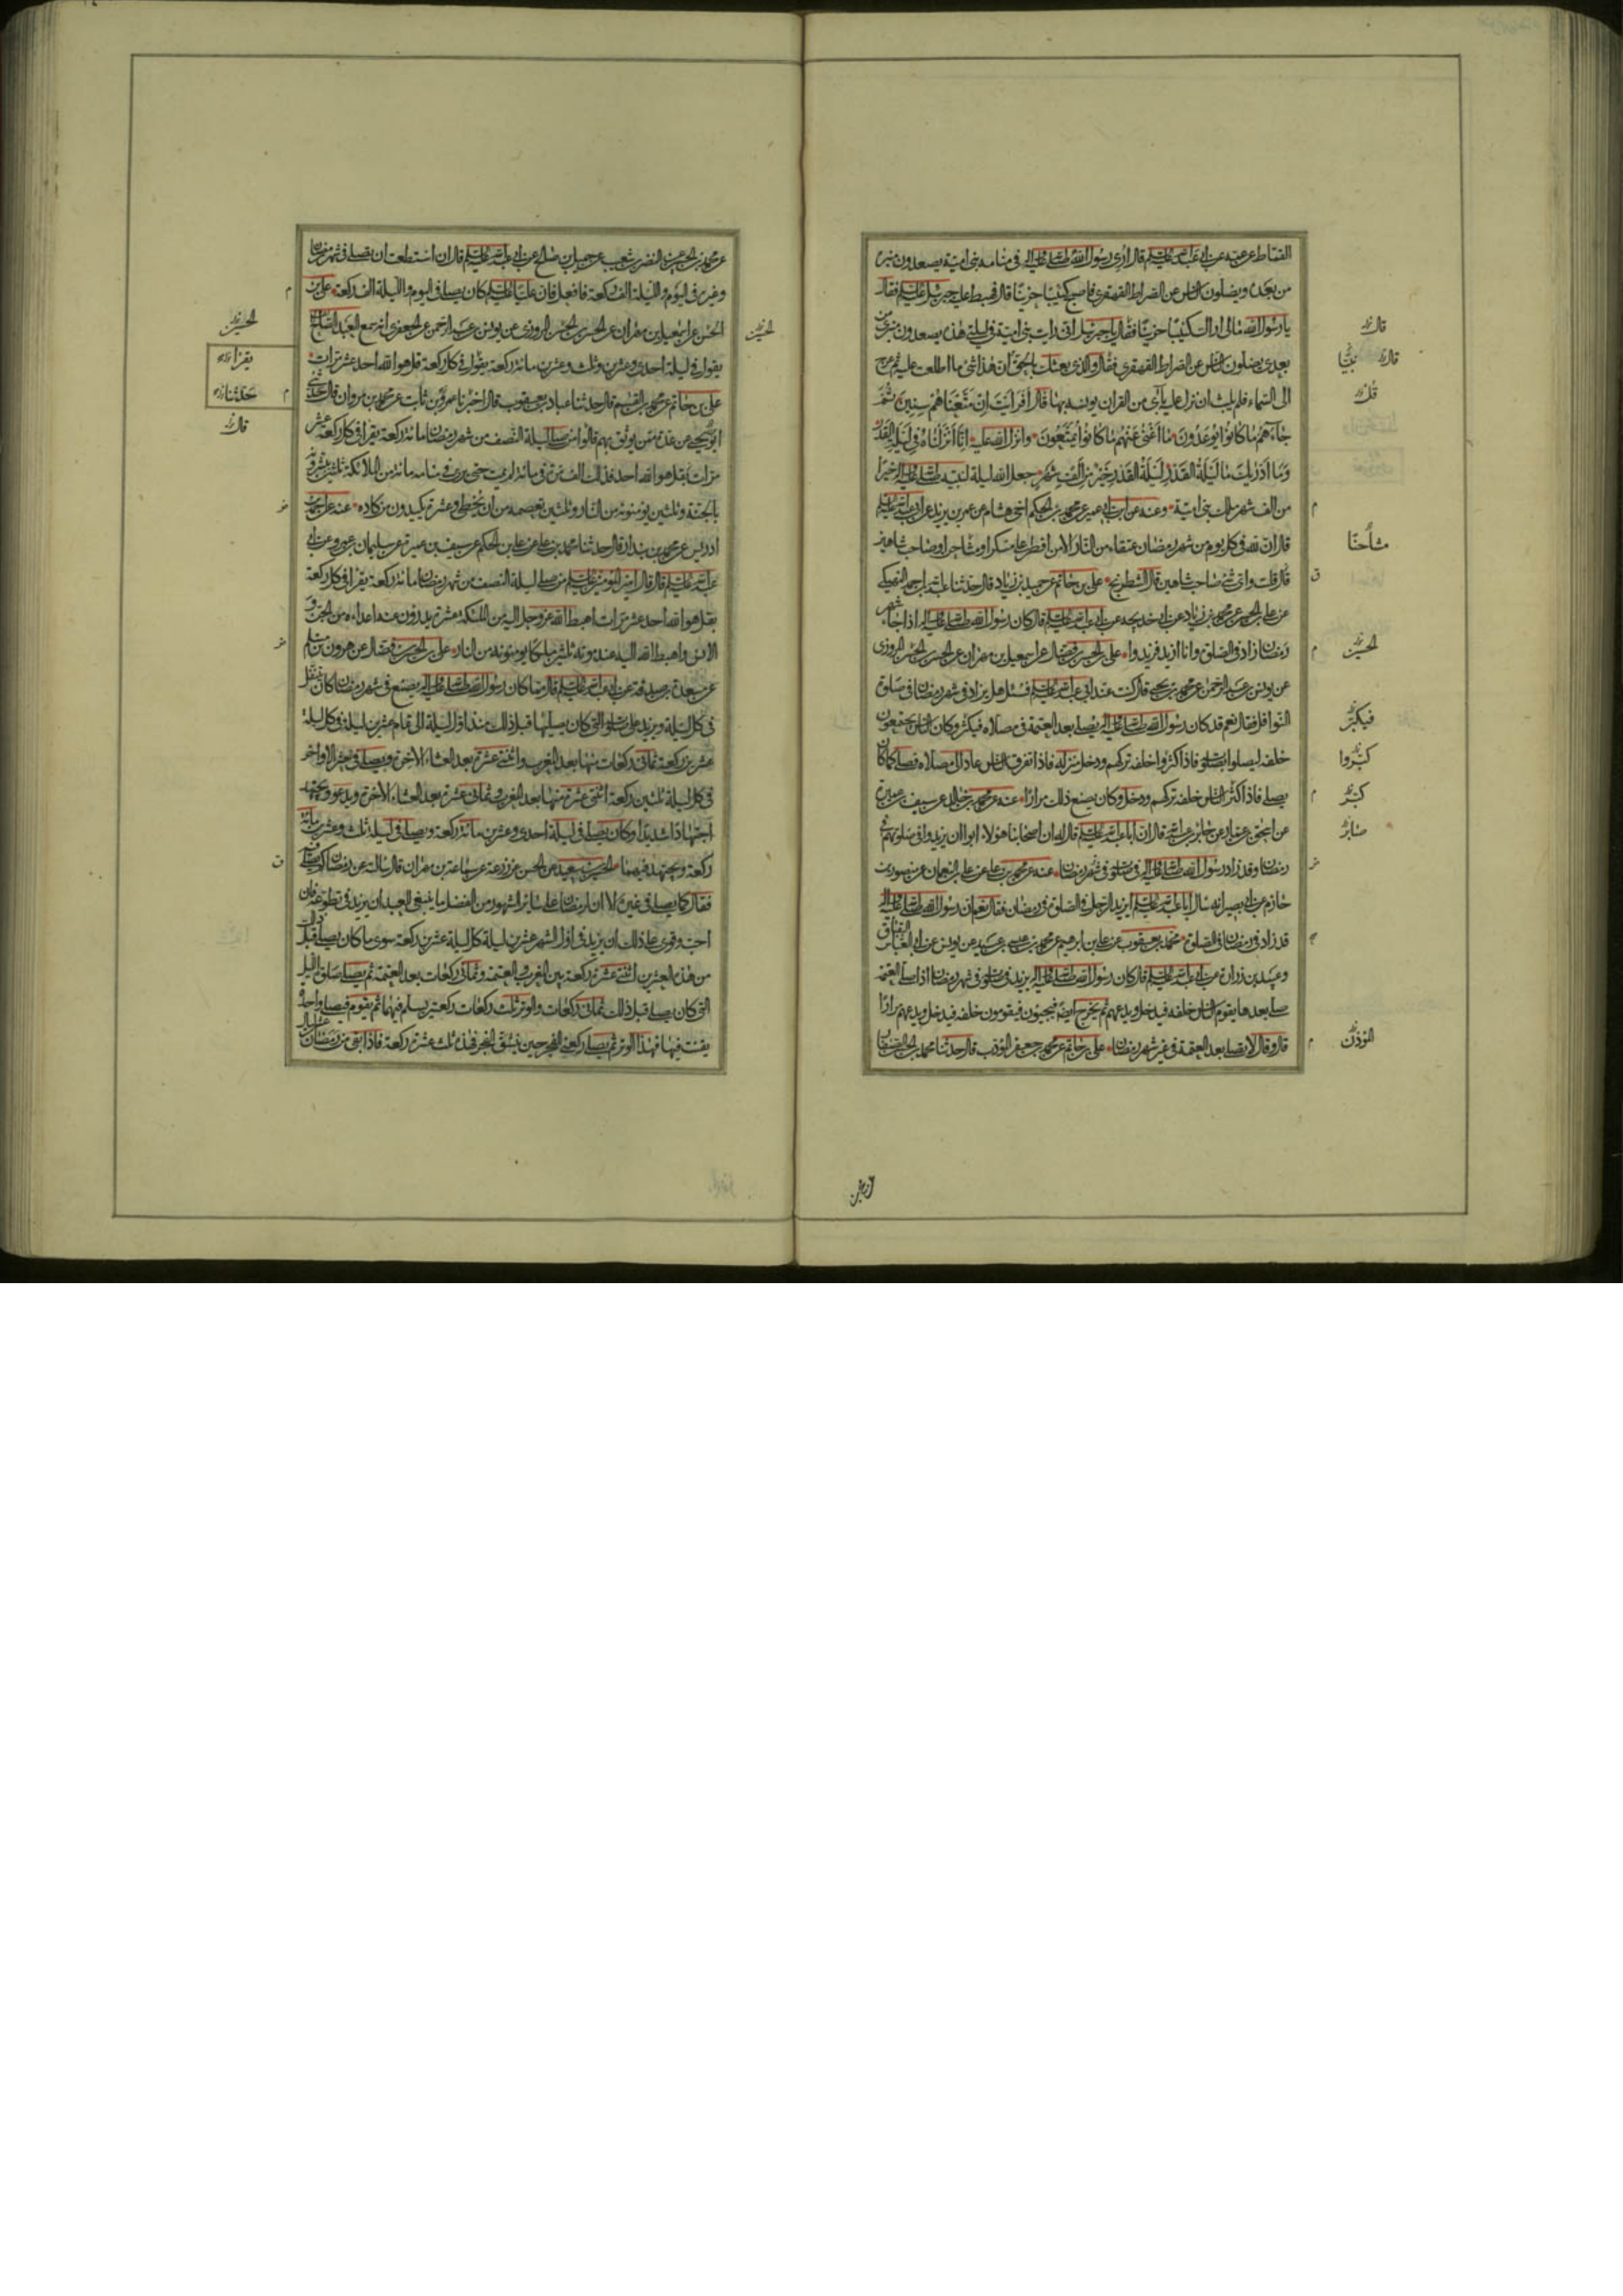 القماط عن عمه عن ابي عبد الله عليه السلم قال اري رسول الله صلى الله عليه واله في منامه بني امية يصعدون منبره
من بعده ويضلون الناس عن الصراط القهقرى فاصبح كئيبا حزينا قال فهبط عليه جبرئيل عليه السلم فقال
يا رسول الله مالي اراك كئيبا حزينا فقال يا جبرئيل اني رايت بني امية في ليلتي هذه يصعدون منبري من
بعدي يضلون الناس عن الصراط القهقرى فقال والذي بعثك بالحق ان هذا شئ ما اطلعت عليه ثم عرج
الى السماء فلم يلبث ان نزل عليه بآي من القران يونسه بها قال أفرأيت إن متعناهم سنين ثم
جاءهم ما كانوا يوعدون ما أغنى عنهم ما كانوا يمتعون وانزل الله عليه إنا أنزلناه في ليلة القدر
وما أدريك ما ليلة القدر ليلة القدر خير من ألف شهر جعل الله ليلة لنبيه صلى الله عليه واله خيرا
من الف شهر ملك بني امية وعنه عن ابن ابي عمير عن محمد بن الحكم اخي هشام عن عمر بن يزيد عن ابي عبد الله عليه السلم
قال ان لله في كل يوم من شهر رمضان عتقاء من النار الا من افطر على مسكر او مشاجرا وصاحب شاهين
قال قلت واي شئ صاحب شاهين قال الشطرنج علي بن حاتم عن حميد بن زياد قال حدثنا عبد الله بن احمد النهيكي
عن علي بن الحسن عن محمد بن زياد عن ابي خديجه عن ابي عبد الله عليه السلم قال كان رسول الله صلى الله عليه واله اذا جاء شهر
رمضان زاد في الصلوة وانا ازيد فزيدوا علي بن الحسن بن فضال عن اسمعيل بن مهران عن الحسن بن الحسن المروزي
عن يونس بن عبد الرحمن عن محمد بن يحيى قال كنت عند ابي عبد الله عليه السلم فسئل هل يزاد في شهر رمضان في صلوة
النوافل فقال نعم قد كان رسول الله صلى الله عليه واله يصلي بعد العتمة في مصلاه فيكثر وكان الناس يجتمعون
خلفه ليصلوا بصلوته فاذا اكثروا خلفه تركهم ودخل منزله فاذا تفرق الناس عاد الى مصلاه فصلى كما كان
يصلي فاذا كثر الناس خلفه تركهم ودخل وكان يصنع ذلك مرارا عنه عن محمد بن خالد عن سيف بن عميرة
عن اسحق بن عمار عن جابر بن عبد الله قال ان ابا عبد الله عليه السلم قال له ان اصحابنا هؤلاء ابوا ان يزيدوا في صلوتهم في
رمضان وقد زاد رسول الله صلى الله عليه واله في صلوته في شهر رمضان عنه عن محمد بن علي عن علي بن النعمان عن منصور بن
حازم عن ابي بصير انه سال ابا عبد الله عليه السلم ايزيد الرجل في الصلوة في رمضان فقال نعم ان رسول الله صلى الله عليه واله
قد زاد في رمضان في الصلوة محمد بن يعقوب عن علي بن ابرهيم عن محمد بن عيسى بن عبيد عن يونس عن ابي العباس البقباق
وعبيد بن زرارة عن ابي عبد الله عليه السلم قال كان رسول الله صلى الله عليه واله يزيد في صلوته في شهر رمضان اذا صلى العتمة
صلى بعدها يقوم الناس خلفه فيدخل ويدعهم ثم يخرج ايضا فيجيئون فيقومون خلفه فيدخل ويدعهم مرارا
قال وقال لا يصلى بعد العتمة في غير شهر رمضان علي بن حاتم عن محمد بن جعفر المؤدب قال حدثنا محمد بن الحسن الصفار
قال
قال
قل
مشاحنا
الحسين
فيكبر
كبروا
كبر
صابر
المؤذن
عن محمد بن
عن محمد بن الحسين عن النضر بن شعيب عن جميل بن صالح عن ابي عبد الله عليه السلم قال ان استطعت ان تصلي في شهر رمضان
وغيره في اليوم والليلة الف ركعة فافعل فان عليا عليه السلم كان يصلي في اليوم والليلة الف ركعة علي بن
الحسن عن اسمعيل بن مهران عن الحسن بن الحسن المروزي عن يونس بن عبد الرحمن عن الجعفري انه سمع العبد الصالح
يقول في ليلة احدى وعشرين وثلث وعشرين مائة ركعة يقول في كل ركعة قل هو الله احد عشر مرات
علي بن حاتم عن محمد بن القسم قال حدثنا عباد بن يعقوب قال اخبرنا عمرو بن ثابت عن محمد بن مروان قال حدثني
ابو يحيى عن عدة ممن يوثق بهم قالوا من صلى ليلة النصف من شهر رمضان مائة ركعة يقرا في كل ركعة عشر
مرات بقل هو الله احد فذلك الف مرة في مائة لم يمت حتى يرى في منامه مائة من الملائكة ثلثين يبشرونه
بالجنة وثلثين يؤمنونه من النار وثلثين تعصمه من ان يخطئ وعشرة يكيدون من كاده عنه عن احمد بن
ادريس عن محمد بن بندار قال حدثنا محمد بن علي عن علي بن الحكم عن سيف بن عميرة عن سليمان بن عمرو عن ابي
عبد الله عليه السلم قال قال امير المؤمنين عليه السلم من صلى ليلة النصف من شهر رمضان مائة ركعة يقرا في كل ركعة
بقل هو الله احد عشر مرات اهبط الله عز وجل اليه من الملئكة عشرة يدرؤون عنه اعداءه من الجن و
الانس واهبط الله اليه عند موته ثلثين ملكا يؤمنونه من النار علي بن الحسن بن فضال عن هرون بن مسلم
عن مسعدة بن صدقة عن ابي عبد الله عليه السلم قال مما كان رسول الله صلى الله عليه واله يصنع في شهر رمضان كان يتنفل
في كل ليلة ويزيد على صلوته التي كان يصليها قبل ذلك منذ اول ليلة الى تمام عشرين ليلة في كل ليلة
عشرين ركعة ثماني ركعات منها بعد المغرب واثنتي عشرة بعد العشاء الاخرة ويصلي في العشر الاواخر
في كل ليلة ثلثين ركعة اثنتي عشرة منها بعد المغرب وثماني عشرة بعد العشاء الاخرة ويدعو ويجتهد
اجتهادا شديدا وكان يصلي في ليلة احدى وعشرين مائة ركعة ويصلي في ليلة ثلث وعشرين مائة
ركعة ويجتهد فيهما الحسين بن سعيد عن الحسن عن زرعة عن سماعة بن مهران قال سالته عن رمضان كم يصلى فيه
فقال كما يصلى في غيره الا ان لرمضان على سائر الشهور من الفضل ما ينبغي للعبد ان يزيد في تطوعه فان
احب وقوي على ذلك ان يزيد في اول الشهر عشرين ليلة كل ليلة عشرين ركعة سوى ما كان يصلي قبل ذلك
من هذه العشرين اثنتي عشرة ركعة بين المغرب والعتمة وثماني ركعات بعد العتمة ثم يصلي صلوة الليل
التي كان يصلي قبل ذلك ثماني ركعات والوتر ثلث ركعات ركعتين يسلم فيهما ثم يقوم فيصلي واحدة
يقنت فيها فهذا الوتر ثم يصلي ركعتي الفجر حين ينشق الفجر فهذه ثلث عشرة ركعة فاذا بقي من رمضان عشر ليال
الحسين
يقرا
حدثنا
قال
الحسين